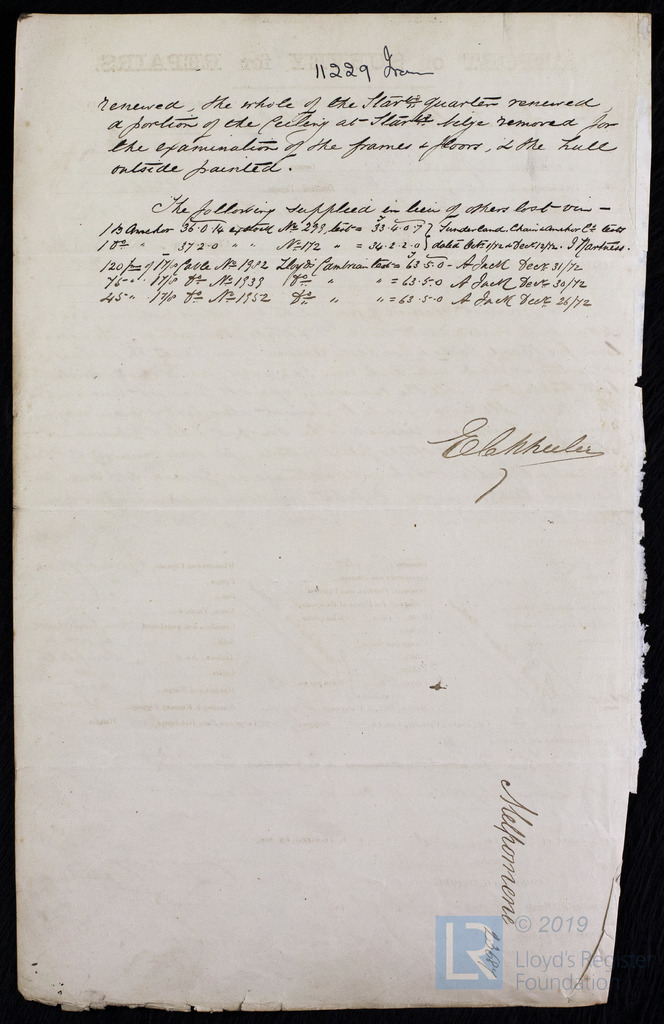 11229 Iron
renewed, the whole of the Starbd quarter renewed,
a portion of the Ceiling at Starbd bilge removed for
the examination of the frames & floors, & the hull
outside painted.
The following supplied in lieu of others lost viz
1 B Anchor 36.0.14 ex stock No 299 test = 33.4.0.7 } Sunderland Chain & Anchor Co tests
1 Do " 37.2.0 " " No 172 " = 34.2.2.0 } dated Hartness.
120 fms of 1 7/8 Cable No 1982 Lloyds Cambrian test = 63.5.0 - A Jack Decr 31/72
75 " " 1 7/8 Do No 1939 Do " " = 63.5.0 A Jack Decr 30/72
45 " 1 7/8 Do No 1952 Do " " = 63.5.0 A Jack Decr 26/72
Melpomene
© 2019
LR
Lloyd's Register
Foundation